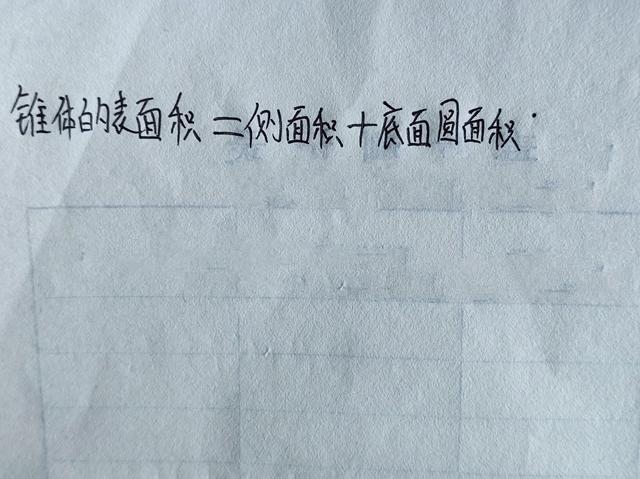 锥体的表面积=侧面积+底面圆面积.